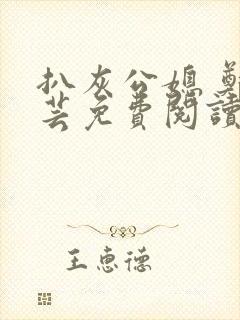 扒灰公媳 鄭
芸免費閱讀
王惠德